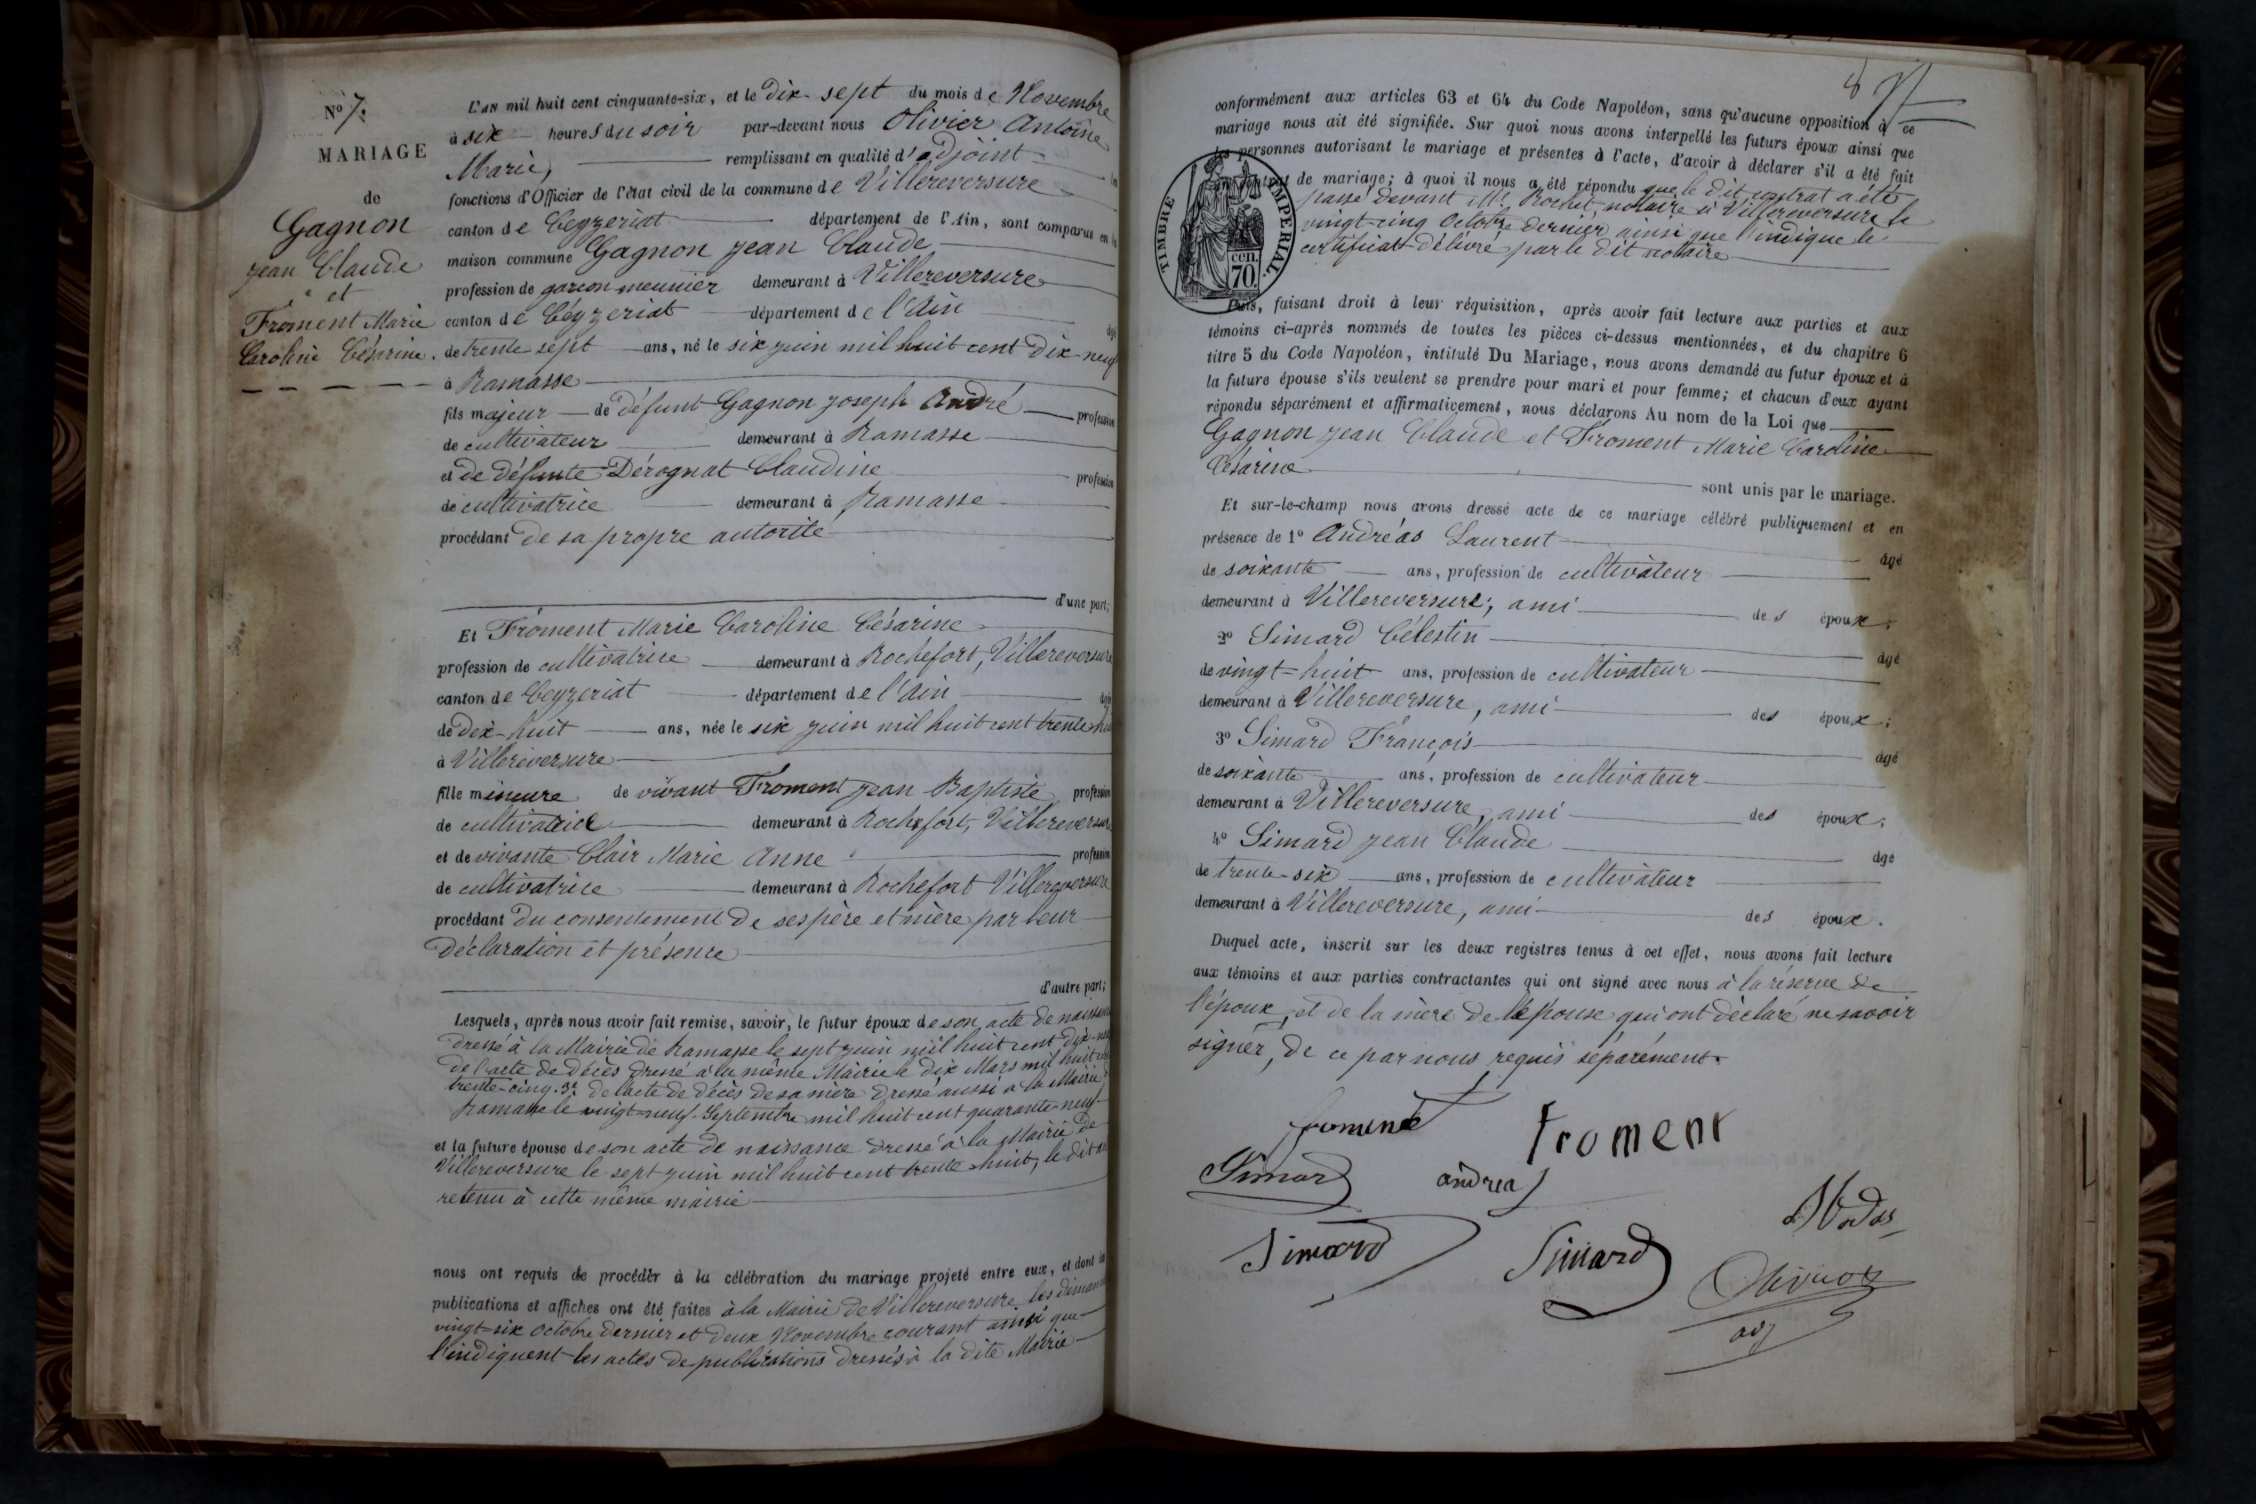 No 7.
MARIAGE
de
Gagnon
Jean Claude
et
Froment Marie
Caroline Césarine.
L'AN mil huit cent cinquante-six, et le dix-sept du mois de Novembre
à six heures du soir par-devant nous Olivier Antoine
Marie, remplissant en qualité d'adjoint les
fonctions d'Officier de l'état civil de la commune de Villereversure
canton de Ceyzeriat département de l'Ain, sont comparus en la
maison commune Gagnon Jean Claude
profession de garçon meunier demeurant à Villereversure
canton de Céyzeriat département de l'Ain âgé
de trente sept ans, né le six juin mil huit cent dix-neuf
à Ramasse
fils majeur de défunt Gagnon Joseph André profession
de cultivateur demeurant à Ramasse
et de défunte Dérognat Claudine profession
de cultivatrice demeurant à Ramasse
procédant de sa propre autorité
d'une part;
Et Froment Marie Caroline Césarine
profession de cultivatrice demeurant à Rochefort, Villereversure
canton de Ceyzeriat département de l'Ain âgée
de dix-huit ans, née le six juin mil huit cent trente huit
à Villereversure
fille mineure de vivant Froment Jean Baptiste profession
de cultivateur demeurant à Rochefort, Villereversure
et de vivante Clair Marie Anne profession
de cultivatrice demeurant à Rochefort Villereversure
procédant du consentement de ses père et mère par leur
déclaration et présence
d'autre part;
Lesquels, après nous avoir fait remise, savoir, le futur époux de son acte de naissance
dressé à la Mairie de Ramasse le sept juin mil huit cent dix-neuf
de l'acte de décès dressé à la même Mairie le dix Mars mil huit cent
trente-cinq. 3e de l'acte de décès de sa mère dressé aussi à la Mairie
Ramasse le vingt-neuf Septembre mil huit cent quarante-neuf
et la future épouse de son acte de naissance dressé à la Mairie de
Villereversure le sept juin mil huit cent trente huit, le dit acte
retenu à cette même mairie
nous ont requis de procéder à la célébration du mariage projeté entre eux, et dont les
publications et affiches ont été faites à la Mairie de Villereversure les dimanches
vingt-six Octobre dernier et deux Novembre courant ainsi que
l'indiquent les actes de publications dressés à la dite Mairie
8
conformément aux articles 63 et 64 du Code Napoléon, sans qu'aucune opposition à ce
mariage nous ait été signifiée. Sur quoi nous avons interpellé les futurs époux ainsi que
les personnes autorisant le mariage et présentes à l'acte, d'avoir à déclarer s'il a été fait
contrat de mariage; à quoi il nous a été répondu que le dit contrat a été
passé devant Me Rochet, notaire à Villereversure le
vingt-cinq Octobre dernier ainsi que l'indique le
certificat délivré par le dit notaire
TIMBRE IMPERIAL.
cen.
70.
Puis, faisant droit à leur réquisition, après avoir fait lecture aux parties et aux
témoins ci-après nommés de toutes les pièces ci-dessus mentionnées, et du chapitre 6
titre 5 du Code Napoléon, intitulé Du Mariage, nous avons demandé au futur époux et à
la future épouse s'ils veulent se prendre pour mari et pour femme; et chacun d'eux ayant
répondu séparément et affirmativement, nous déclarons Au nom de la Loi que
Gagnon Jean Claude et Froment Marie Caroline
Césarine
sont unis par le mariage.
Et sur-le-champ nous avons dressé acte de ce mariage célébré publiquement et en
présence de 1o Andréas Laurent âgé
de soixante ans, profession de cultivateur
demeurant à Villereversure, ami des époux;
2o Simard Célestin âgé
de vingt-huit ans, profession de cultivateur
demeurant à Villereversure, ami des époux;
3o Simard François âgé
de soixante ans, profession de cultivateur
demeurant à Villereversure, ami des époux;
4o Simard Jean Claude âgé
de trente-six ans, profession de cultivateur
demeurant à Villereversure, ami des époux.
Duquel acte, inscrit sur les deux registres tenus à cet effet, nous avons fait lecture
aux témoins et aux parties contractantes qui ont signé avec nous à la réserve de
l'époux, et de la mère de l'épouse qui ont déclaré ne savoir
signer, de ce par nous requis séparément.
froment
Froment
Simard
andreas
Simard
Simard
Olivier
adj